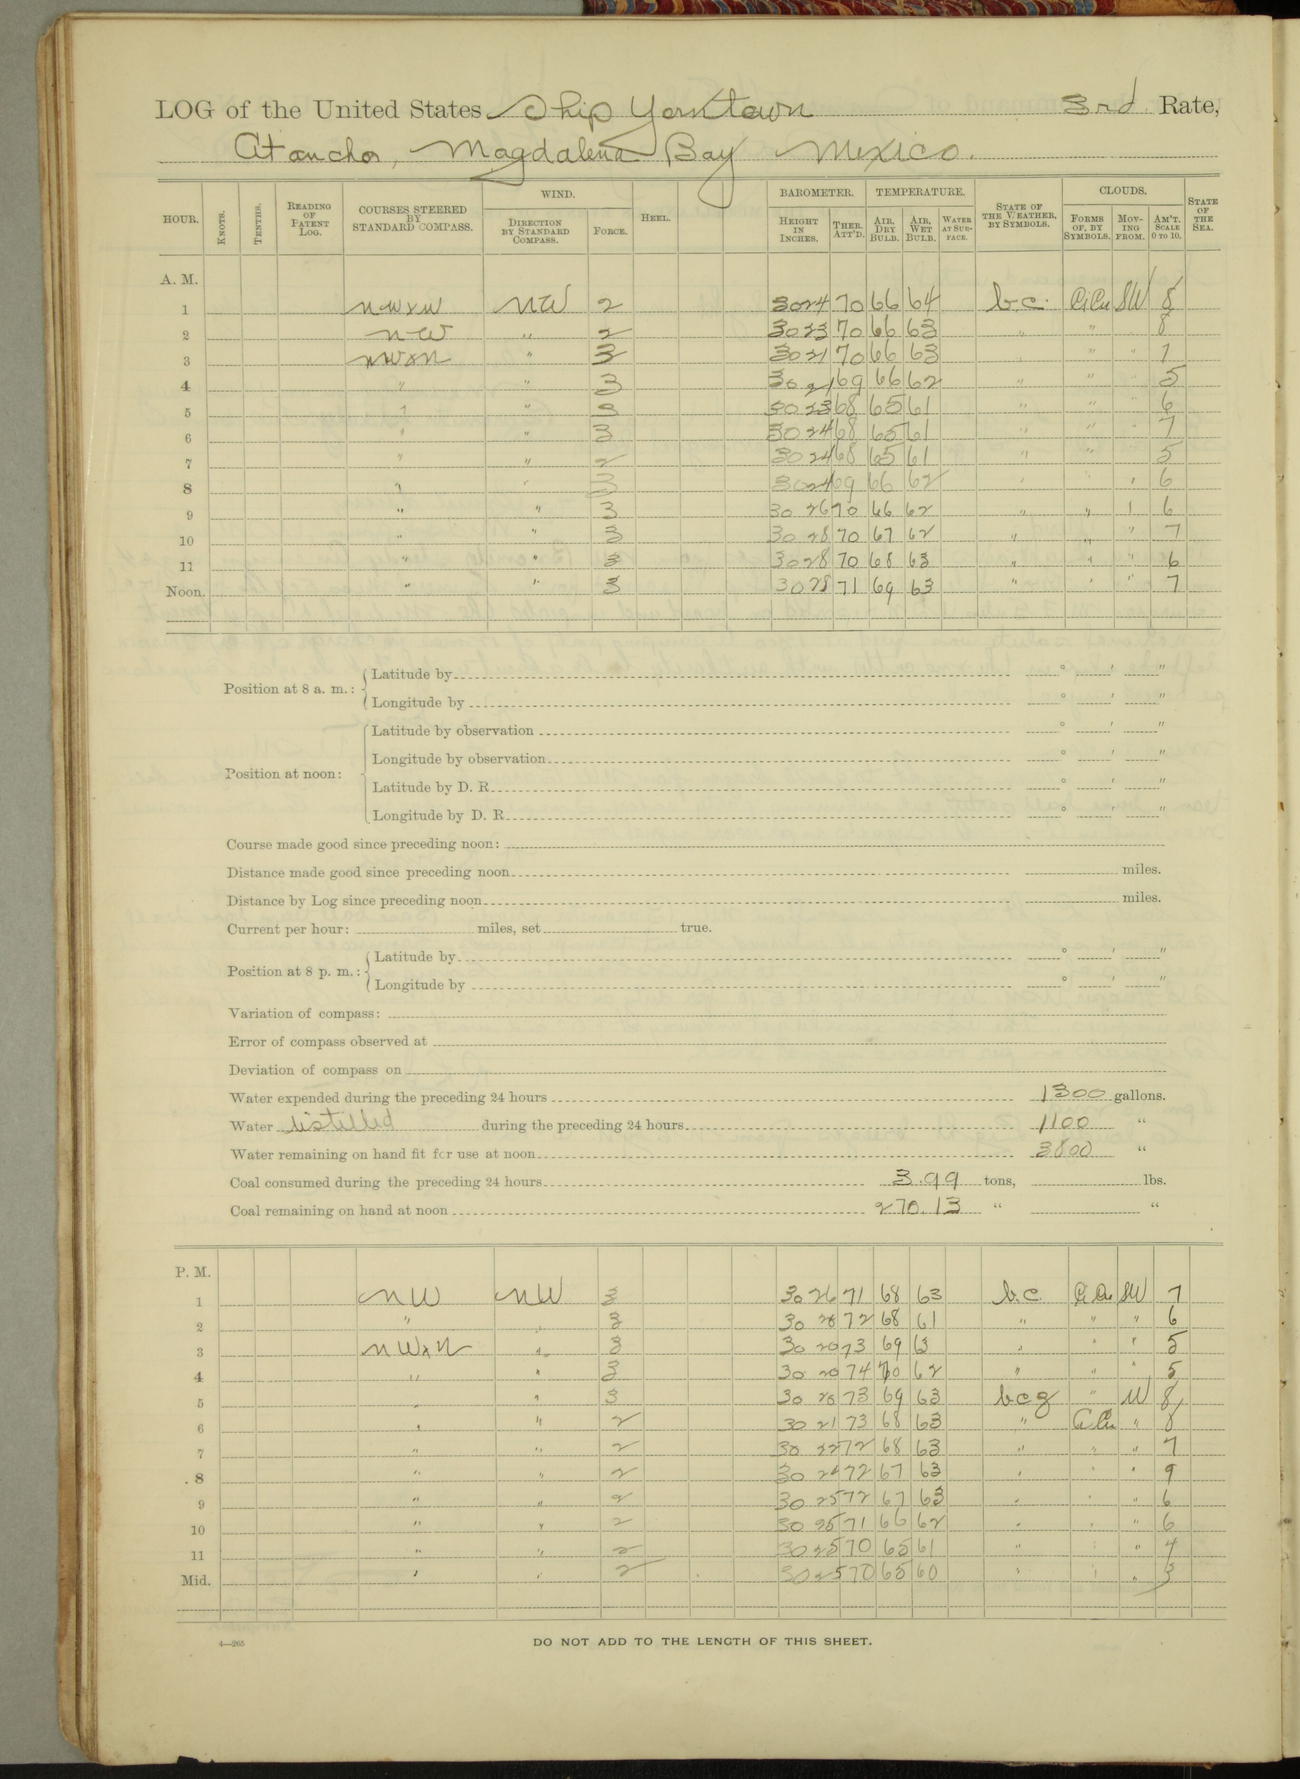 LOG of the United States Ship Yorktown 3rd Rate,
At anchor, Magdalena Bay Mexico.
HOUR. KNOTS. TENTHS. READING OF PATENT LOG. COURSES STEERED BY STANDARD COMPASS. WIND. DIRECTION BY STANDARD COMPASS. FORCE. HEEL. BAROMETER. HEIGHT IN INCHES. THER. ATT'D. TEMPERATURE. AIR, DRY BULB. AIR, WET BULB. WATER AT SURFACE. STATE OF THE WEATHER, BY SYMBOLS. CLOUDS. FORMS OF, BY SYMBOLS. MOVING FROM. AM'T. SCALE 0 TO 10. STATE OF THE SEA.
A. M.
1 NWxW NW 2 30 24 70 66 64 b.c. Ci Cu SW 8
2 NW " 2 30 23 70 66 63 " " 8
3 NWxN " 3 30 21 70 66 63 " " 7
4 " " 3 30 21 69 66 62 " " 5
5 " " 3 30 23 68 65 61 " " " 6
6 " " 3 30 24 68 65 61 " " " 7
7 " " 2 30 24 68 65 61 " " 5
8 " " 3 30 24 69 66 62 " " " 6
9 " " 3 30 26 70 66 62 " " " 6
10 " " 3 30 28 70 67 62 " " " 7
11 " " 3 30 28 70 68 63 " " " 6
Noon. " " 3 30 28 71 69 63 " " " 7
Position at 8 a. m.: Latitude by ° ' "
Longitude by ° ' "
Position at noon: Latitude by observation ° ' "
Longitude by observation ° ' "
Latitude by D. R. ° ' "
Longitude by D. R. ° ' "
Course made good since preceding noon:
Distance made good since preceding noon miles.
Distance by Log since preceding noon miles.
Current per hour: miles, set true.
Position at 8 p. m.: Latitude by ° ' "
Longitude by ° ' "
Variation of compass:
Error of compass observed at
Deviation of compass on
Water expended during the preceding 24 hours 1300 gallons.
Water distilled during the preceding 24 hours 1100 "
Water remaining on hand fit for use at noon 3800 "
Coal consumed during the preceding 24 hours 3.99 tons, lbs.
Coal remaining on hand at noon 270.13 " "
P. M.
1 NW NW 3 30 26 71 68 63 b.c. Ci Cu SW 7
2 " " 3 30 72 68 61 " " " 6
3 NWxN " 3 30 20 73 69 63 " " " 5
4 " " 3 30 20 74 70 62 " " " 5
5 " " 3 30 20 73 69 63 bcg " W 8
6 " " 2 30 21 73 68 63 " Ci Cu " 8
7 " " 2 30 22 72 68 63 " " " 7
8 " " 2 30 24 72 67 63 " " " 9
9 " " 2 30 25 72 67 63 " " " 6
10 " " 2 30 25 71 66 62 " " " 6
11 " " 2 30 25 70 65 61 " " " 4
Mid. " " 2 30 25 70 65 60 " " " 3
4—265
DO NOT ADD TO THE LENGTH OF THIS SHEET.